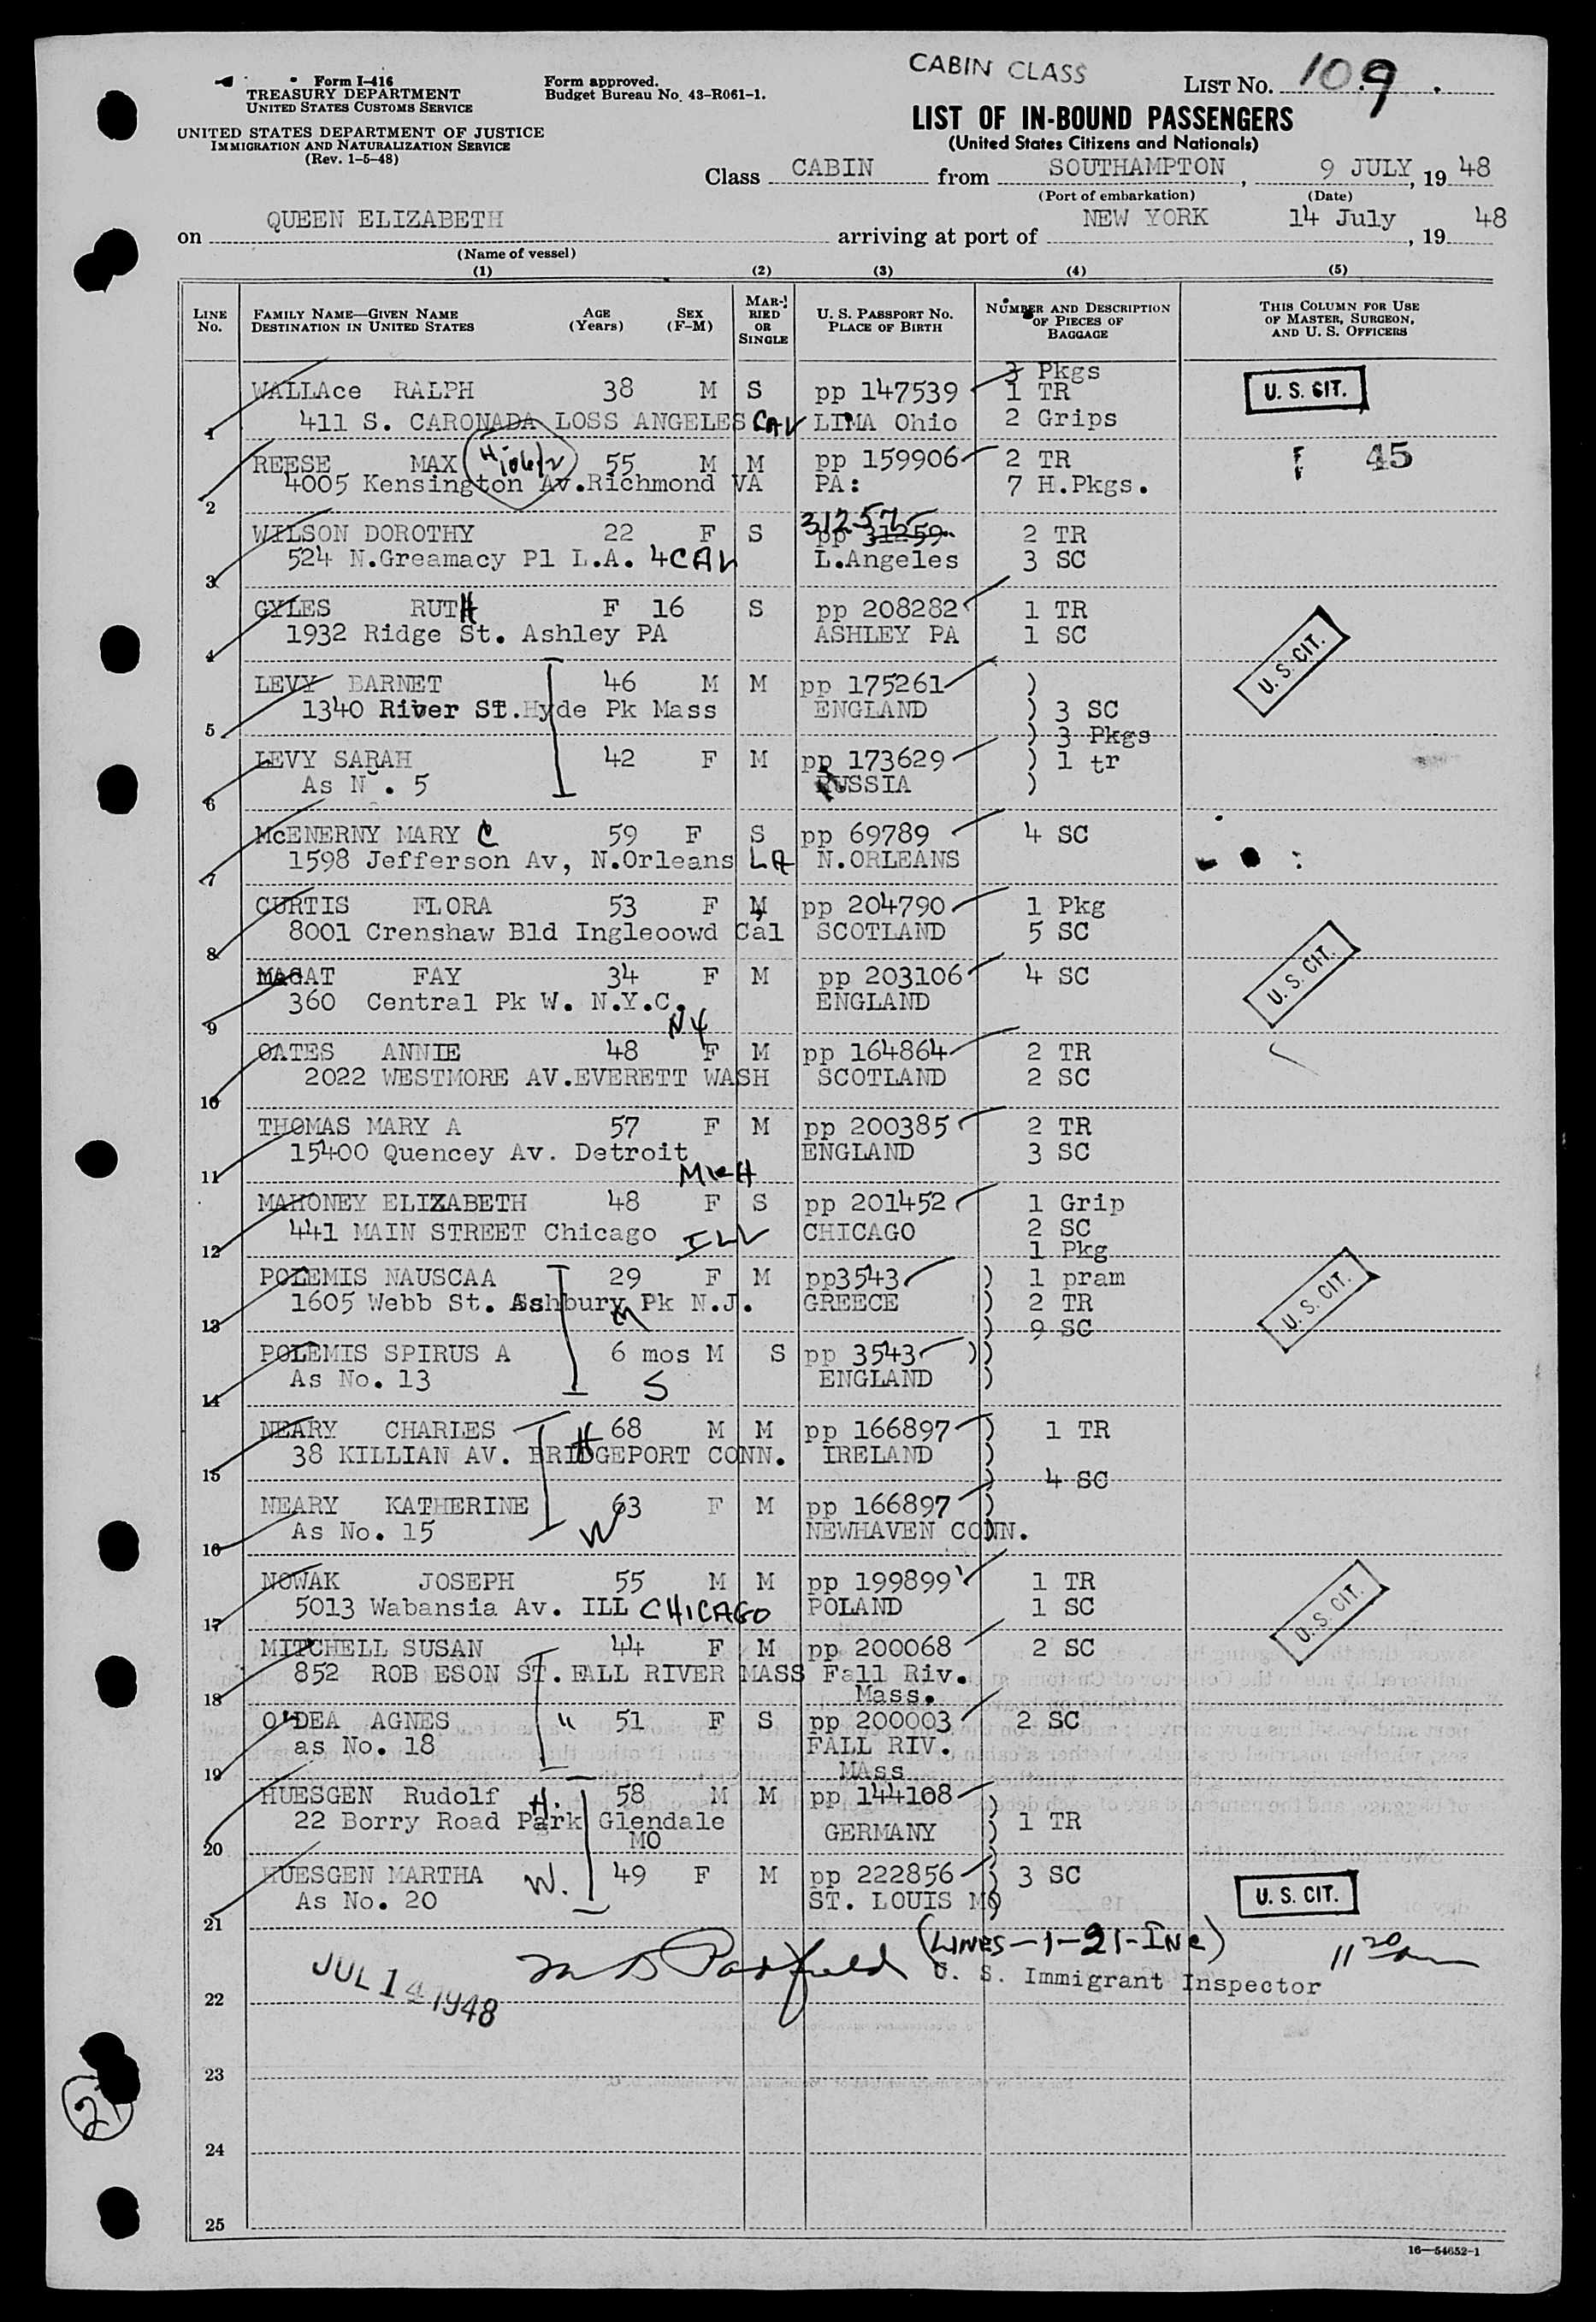 CABIN CLASS
Form I-416
TREASURY DEPARTMENT
UNITED STATES CUSTOMS SERVICE
Form approved.
Budget Bureau No. 43-R061-1.
LIST NO. 109
UNITED STATES DEPARTMENT OF JUSTICE
IMMIGRATION AND NATURALIZATION SERVICE
(Rev. 1-5-48)
LIST OF IN-BOUND PASSENGERS
(United States Citizens and Nationals)
Class CABIN from SOUTHAMPTON, 9 JULY, 19 48
(Port of embarkation) (Date)
on QUEEN ELIZABETH arriving at port of NEW YORK 14 July, 19 48
(Name of vessel)
(1) (2) (3) (4) (5)
LINE No. FAMILY NAME—GIVEN NAME DESTINATION IN UNITED STATES AGE (Years) SEX (F-M) MARRIED OR SINGLE U. S. PASSPORT NO. PLACE OF BIRTH NUMBER AND DESCRIPTION OF PIECES OF BAGGAGE THIS COLUMN FOR USE OF MASTER, SURGEON, AND U. S. OFFICERS
3 Pkgs
WALLAce RALPH 38 M S pp 147539 1 TR U. S. CIT.
1 411 S. CARONADA LOSS ANGELES CAL LIMA Ohio 2 Grips
REESE MAX 55 M M pp 159906 2 TR 45
2 4005 Kensington Av.Richmond VA PA: 7 H.Pkgs.
31257
WILSON DOROTHY 22 F S pp 31259 2 TR
3 524 N.Greamacy Pl L.A. 4 CAL L.Angeles 3 SC
GYLES RUTH F 16 S pp 208282 1 TR
4 1932 Ridge St. Ashley PA ASHLEY PA 1 SC
U. S. CIT.
LEVY BARNET 46 M M pp 175261 )
5 1340 River St.Hyde Pk Mass ENGLAND ) 3 SC
) 3 Pkgs
LEVY SARAH 42 F M pp 173629 ) 1 tr
6 As N . 5 RUSSIA )
McENERNY MARY C 59 F S pp 69789 4 SC
7 1598 Jefferson Av, N.Orleans LA N.ORLEANS
CURTIS FLORA 53 F M pp 204790 1 Pkg
8 8001 Crenshaw Bld Ingleoowd Cal SCOTLAND 5 SC
MAGAT FAY 34 F M pp 203106 4 SC U. S. CIT.
9 360 Central Pk W. N.Y.C. NY ENGLAND
OATES ANNIE 48 F M pp 164864 2 TR
10 2022 WESTMORE AV.EVERETT WASH SCOTLAND 2 SC
THOMAS MARY A 57 F M pp 200385 2 TR
11 15400 Quencey Av. Detroit MICH ENGLAND 3 SC
MAHONEY ELIZABETH 48 F S pp 201452 1 Grip
12 441 MAIN STREET Chicago ILL CHICAGO 2 SC
1 Pkg
POLEMIS NAUSCAA 29 F M pp3543 ) 1 pram
13 1605 Webb St. Ashbury Pk N.J. M GREECE ) 2 TR U. S. CIT.
) 9 SC
POLEMIS SPIRUS A 6 mos M S pp 3543 ))
14 As No. 13 S ENGLAND )
NEARY CHARLES H 68 M M pp 166897 ) 1 TR
15 38 KILLIAN AV. BRIDGEPORT CONN. IRELAND )
) 4 SC
NEARY KATHERINE W 63 F M pp 166897 )
16 As No. 15 NEWHAVEN CONN.
NOWAK JOSEPH 55 M M pp 199899 1 TR
17 5013 Wabansia Av. ILL CHICAGO POLAND 1 SC U. S. CIT.
MITCHELL SUSAN 44 F M pp 200068 2 SC
18 852 ROB ESON ST. FALL RIVER MASS Fall Riv.
Mass.
O'DEA AGNES " 51 F S pp 200003 2 SC
19 as No. 18 FALL RIV.
MAss
HUESGEN Rudolf H. 58 M M pp 144108 )
20 22 Borry Road Park Glendale MO GERMANY ) 1 TR
HUESGEN MARTHA W. 49 F M pp 222856 ) 3 SC
21 As No. 20 ST. LOUIS MO U. S. CIT.
(LINES-1-21-Inc)
JUL 14 1948 U. S. Immigrant Inspector
22
23
24
25
16—54652-1